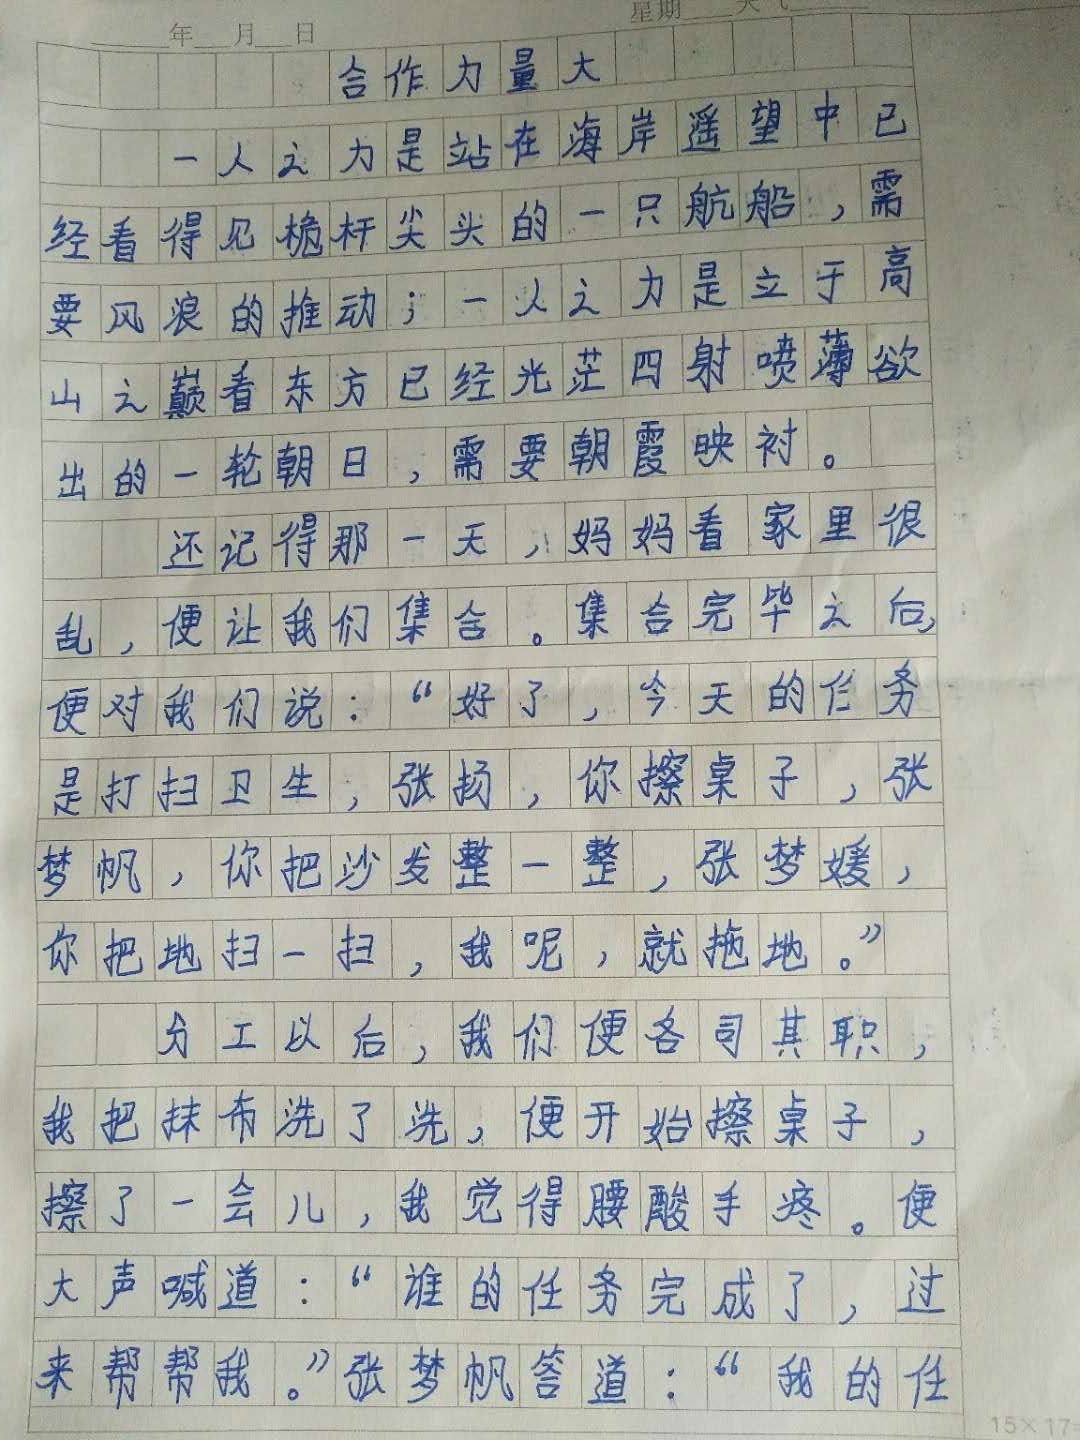 星期 天气
年 月 日
合作力量大
一人之力是站在海岸遥望中已
经看得见桅杆尖头的一只航船，需
要风浪的推动；一人之力是立于高
山之巅看东方已经光茫四射喷薄欲
出的一轮朝日，需要朝霞映衬。
还记得那一天，妈妈看家里很
乱，便让我们集合。集合完毕之后，
便对我们说：“好了，今天的任务
是打扫卫生，张扬，你擦桌子，张
梦帆，你把沙发整一整，张梦媛，
你把地扫一扫，我呢，就拖地。”
分工以后，我们便各司其职，
我把抹布洗了洗，便开始擦桌子，
擦了一会儿，我觉得腰酸手疼。便
大声喊道：“谁的任务完成了，过
来帮帮我。”张梦帆答道：“我的任
15×17=